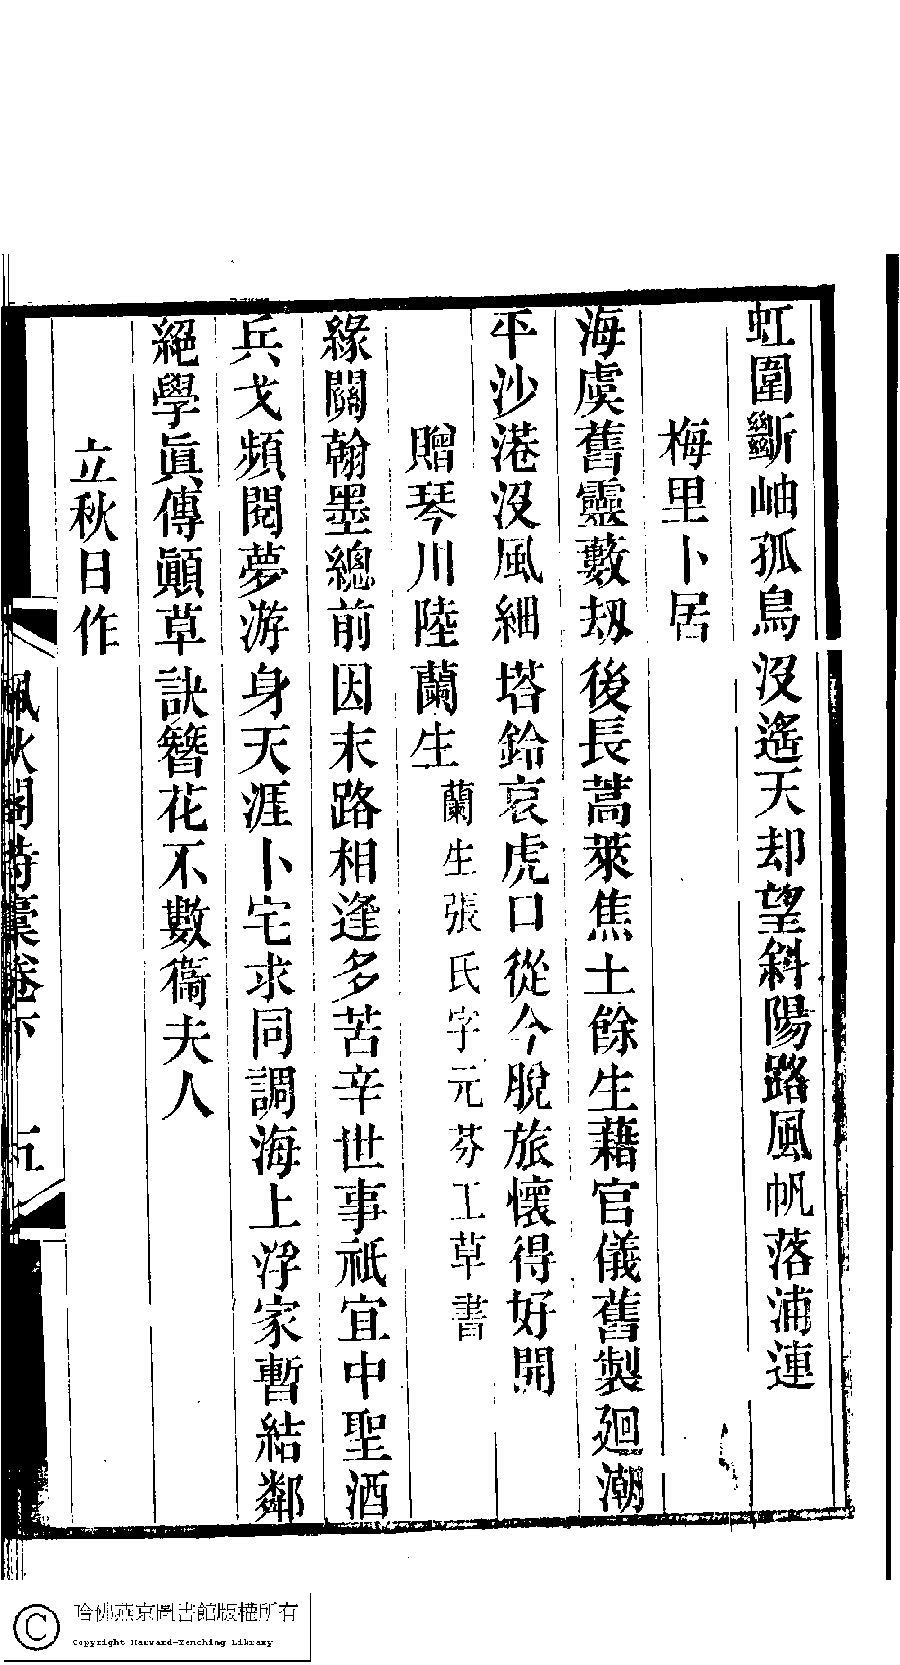 虹圍斷岫孤鳥沒遙天却望斜陽路風帆落浦連
梅里卜居
海虞舊靈藪刼後長蒿萊焦土餘生藉官儀舊製廻潮
平沙港沒風細塔鈴哀虎口從今脫旅懷得好開
贈琴川陸蘭生蘭生張氏字元芬工草書
緣關翰墨總前因末路相逢多苦辛世事祇宜中聖酒
兵戈頻閱夢游身天涯卜宅求同調海上浮家暫結鄰
絕學眞傳顚草訣簪花不數衞夫人
立秋日作
佩秋閣詩藁卷下 五
哈佛燕京圖書館版權所有
Copyright Harvard-Yenching Library